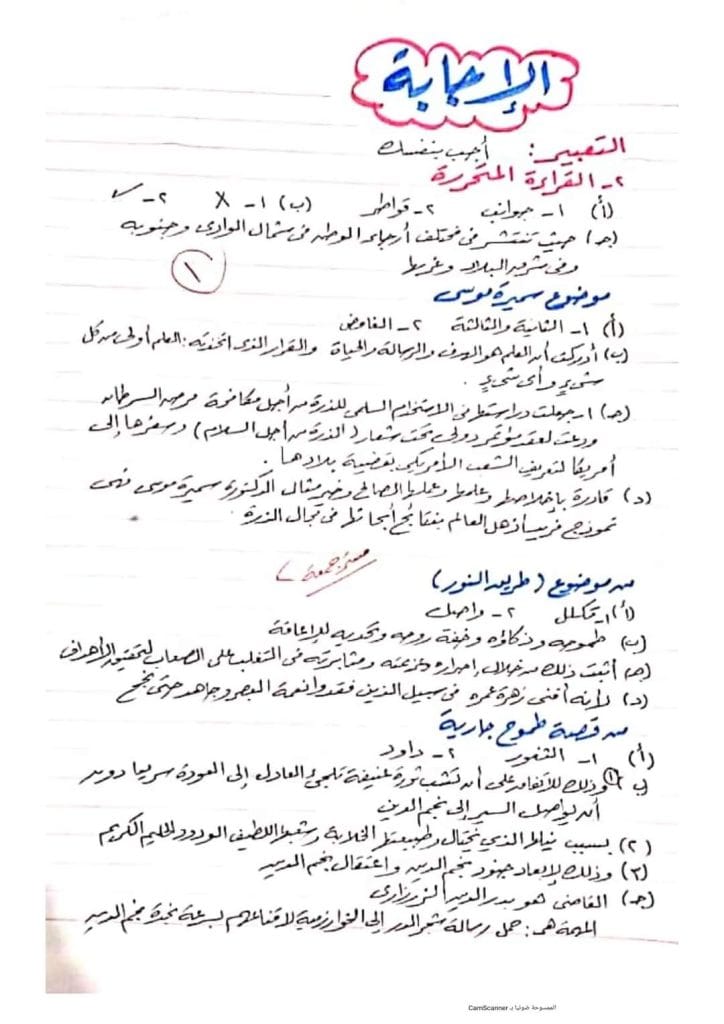 الإجابة
التعبير: أجب بنفسك
٢- القراءة المتحررة
(أ) ١- جوانب ٢- قواطر (ب) ١- X ٢- ✓
(جـ) حيث تنتشر فى مختلف أرجاء الوطن فى شمال الوادى وجنوبه
وفى شرق البلاد وغربها
١
موضوع سميرة موسى
(أ) ١- الثانية والثالثة ٢- الغامض
(ب) أدركت أن العلم هو الهدف والرسالة والحياة والقرار الذى اتخذته: العلم أولى من كل
شىءٍ وأى شىءٍ.
(جـ) ١- جعلت دراستها فى الاستخدام السلمى للذرة من أجل مكافحة مرض السرطان
ودعت لعقد مؤتمر دولى تحت شعار (الذرة من أجل السلام) وسفرها إلى
أمريكا لتعريف الشعب الأمريكى بقضية بلادها.
(د) قادرة بإخلاصها وعلمها وعملها الصالح وخير مثال الدكتورة سميرة موسى فهى
نموذج فريد أذهل العالم بنتائج أبحاثها فى مجال الذرة.
مستر جمعة
من موضوع (طريق النور)
(أ) ١- تكلل ٢- واصل
(ب) طموحه وذكاؤه وخفة روحه وتحديه للإعاقة
(جـ) أثبت ذلك من خلال إصراره وعزيمته ومثابرته فى التغلب على الصعاب لتحقيق الأهداف
(د) لأنه أفنى زهرة عمره فى سبيل الذين فقدوا نعمة البصر وجاهد حتى نجح
من قصة طموح جارية
(أ) ١- الثغور ٢- داود
(ب) ١ وذلك للاتفاق على أن تنشب ثورة عنيفة تلجئ العادل إلى العودة سريعا دون
أن يواصل السير إلى نجم الدين
(٢) بسبب نيلها الذي يختال وطبيعتها الخلابة وشعبها اللطيف الودود الحليم الكريم
(٣) وذلك لإبعاد جنود نجم الدين واعتقال نجم الدين
(جـ) القاضى هو بدر الدين الزرزارى
المهمة هى: حمل رسالة شجر الدر إلى الخوارزمية لإقناعهم بسرعة نجدة نجم الدين
الممسوحة ضوئيا بـ CamScanner